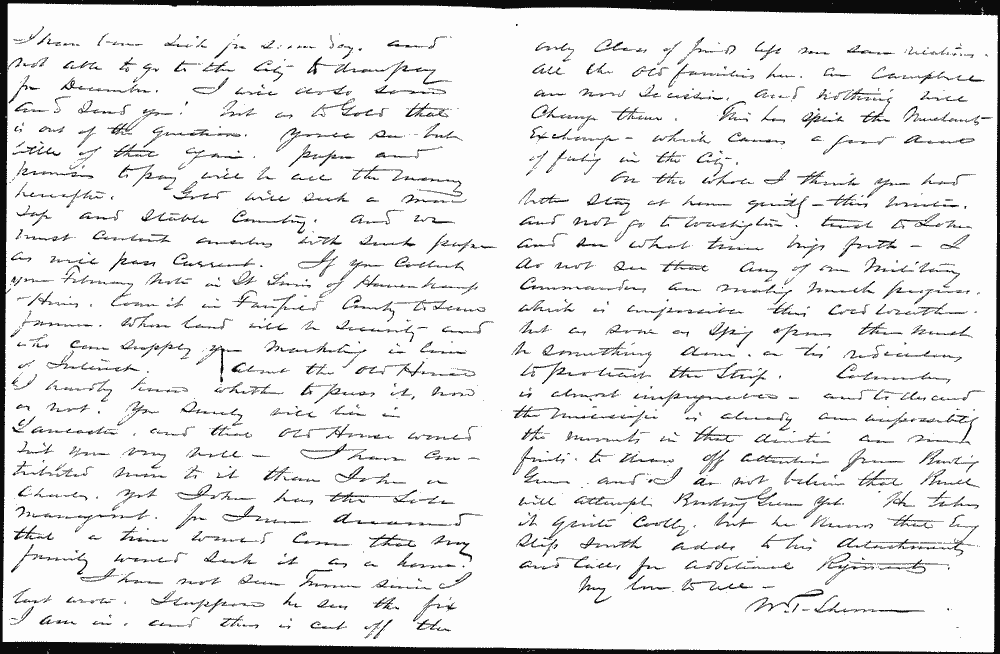 I have been sick for seven days. and
not able to go to the City to draw pay
for December. I will do so soon
and send you. but as to Gold that
is out of the question. You'll see but
little of that again. paper and
promises to pay will be all the money
hereafter. Gold will seek a more
safe and stable Country. and we
must content ourselves with such paper
as will pass current. If you Collect
your February Note in St Louis of
Harris. loan it in Fairfield County to some
farmer. whose land will be security and
who can supply you marketing in lieu
of Interest. About the old House
I hardly know whether to press it, now
or not. You surely will live in
Lancaster. and that old House would
suit you very well - I have con-
tributed more to it than John or
Charles. yet John has the Sole
management. for I never dreamed
that a time would come that my
family would seek it as a home.
I have not seen since I
last wrote. I suppose he sees the fix
I am in, and thus is cut off the
only Class of friends left me save relations.
all the old families here. are Campbell
are now Secession. and nothing will
Change them. This has split the Merchants
Exchange - which causes a good deal
of feeling in the City.
On the whole I think you had
better stay at home quietly - this winter.
and not go to Washington. trust to John
and see what time brings forth - I
do not see that any of our Military
Commanders are making much progress.
which is impossible this cold weather.
but as soon as Spring opens there must
be something done. or tis ridiculous
to protract the Strife. Columbus
is almost impregnable - and to descend
the Mississippi is already an impossibility
the movements in that direction are mere
feints. to draw off attention from Bowling
Green and I do not believe that Buell
will attempt Bowling Green yet. He takes
it quite Coolly. but he knows that every
step South adds to his detachments
and calls for additional Regiments.
My love to all -
W. T. Sherman